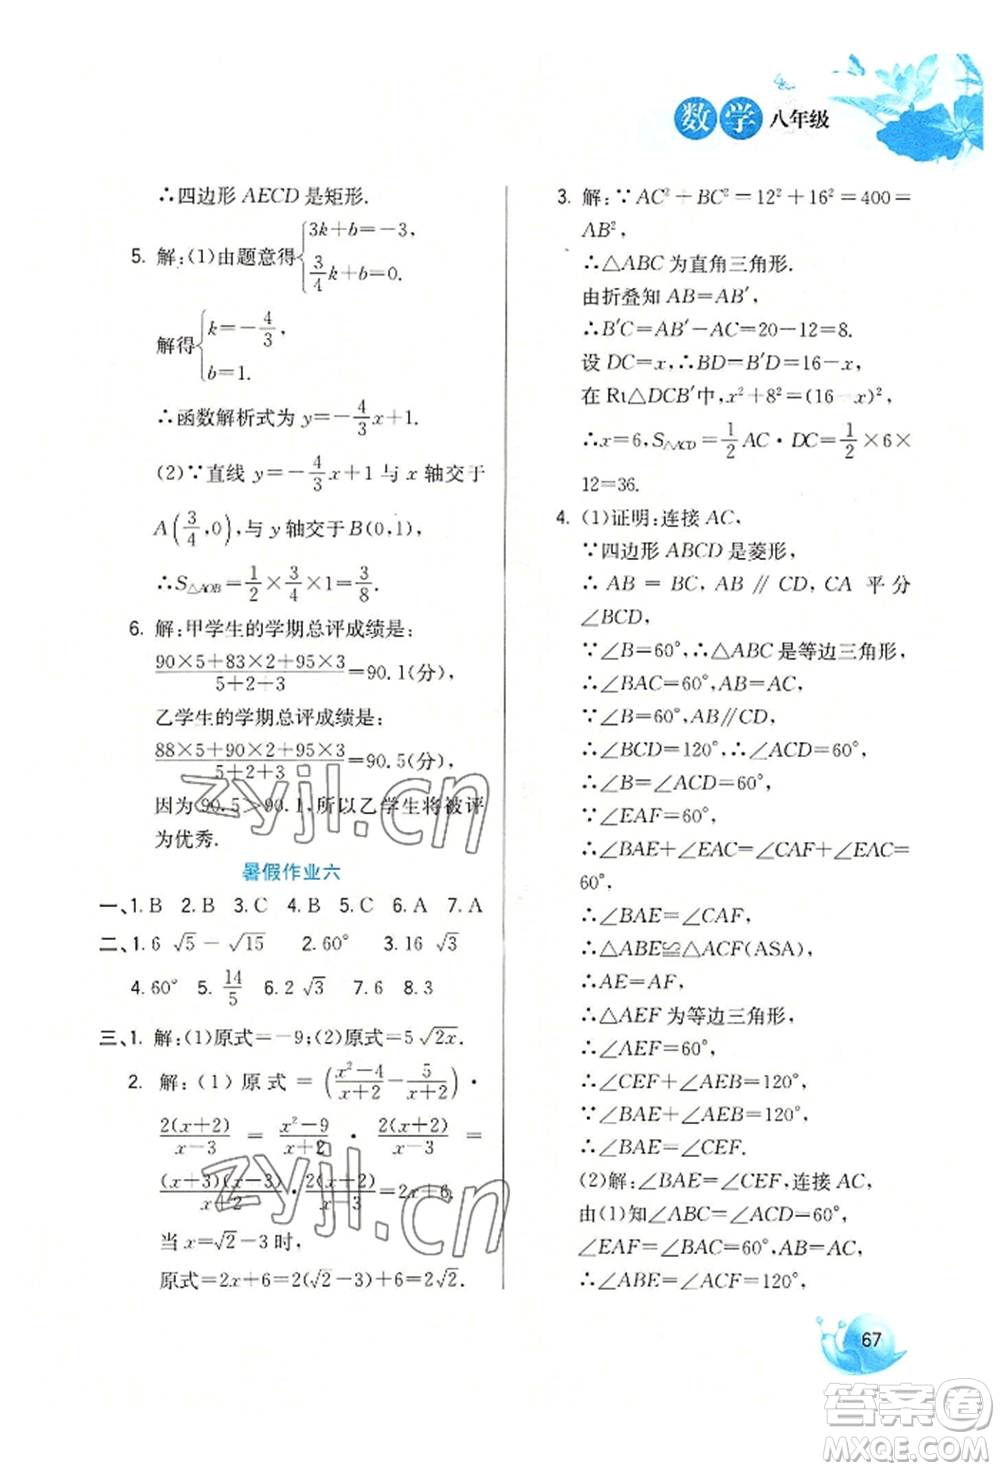 数学 八年级
∴四边形 AECD 是矩形.
5. 解:(1)由题意得{3k+b=-3,
3/4k+b=0.
解得{k=-4/3,
b=1.
∴函数解析式为 y=-4/3x+1.
(2)∵直线 y=-4/3x+1 与 x 轴交于
A(3/4,0),与 y 轴交于 B(0,1),
∴S△AOB=1/2×3/4×1=3/8.
6. 解:甲学生的学期总评成绩是:
(90×5+83×2+95×3)/(5+2+3)=90.1(分),
乙学生的学期总评成绩是:
(88×5+90×2+95×3)/(5+2+3)=90.5(分),
因为 90.5>90.1,所以乙学生将被评
为优秀.
暑假作业六
一、1. B 2. B 3. C 4. B 5. C 6. A 7. A
二、1. 6√5-√15 2. 60° 3. 16√3
4. 60° 5. 14/5 6. 2√3 7. 6 8. 3
三、1. 解:(1)原式=-9;(2)原式=5√2x.
2. 解:(1)原式=((x²-4)/(x+2)-5/(x+2))·
2(x+2)/(x-3)=(x²-9)/(x+2)·2(x+2)/(x-3)=
(x+3)(x-3)/(x+2)·2(x+2)/(x-3)=2x+6,
当 x=√2-3 时,
原式=2x+6=2(√2-3)+6=2√2.
3. 解:∵AC²+BC²=12²+16²=400=
AB²,
∴△ABC 为直角三角形.
由折叠知 AB=AB′,
∴B′C=AB′-AC=20-12=8.
设 DC=x,∴BD=B′D=16-x,
在 Rt△DCB′中,x²+8²=(16-x)²,
∴x=6,S△ACD=1/2AC·DC=1/2×6×
12=36.
4. (1)证明:连接 AC,
∵四边形 ABCD 是菱形,
∴AB=BC,AB∥CD,CA 平分
∠BCD,
∵∠B=60°,∴△ABC 是等边三角形,
∴∠BAC=60°,AB=AC,
∵∠B=60°,AB∥CD,
∴∠BCD=120°,∴∠ACD=60°,
∴∠B=∠ACD=60°,
∵∠EAF=60°,
∴∠BAE+∠EAC=∠EAC+∠CAF=
60°,
∴∠BAE=∠CAF,
∴△ABE≌△ACF(ASA),
∴AE=AF,
∴△AEF 为等边三角形,
∴∠AEF=60°,
∴∠AEB+∠CEF=120°,
∵∠BAE+∠AEB=120°,
∴∠BAE=∠CEF.
(2)解:∠BAE=∠CEF,连接 AC,
由(1)知∠ABC=∠ACD=60°,
∠EAF=∠BAC=60°,AB=AC,
∴∠ABE=∠ACF=120°,
67
zyjl.cn
zyjl.cn
答案圈
MXQE.COM